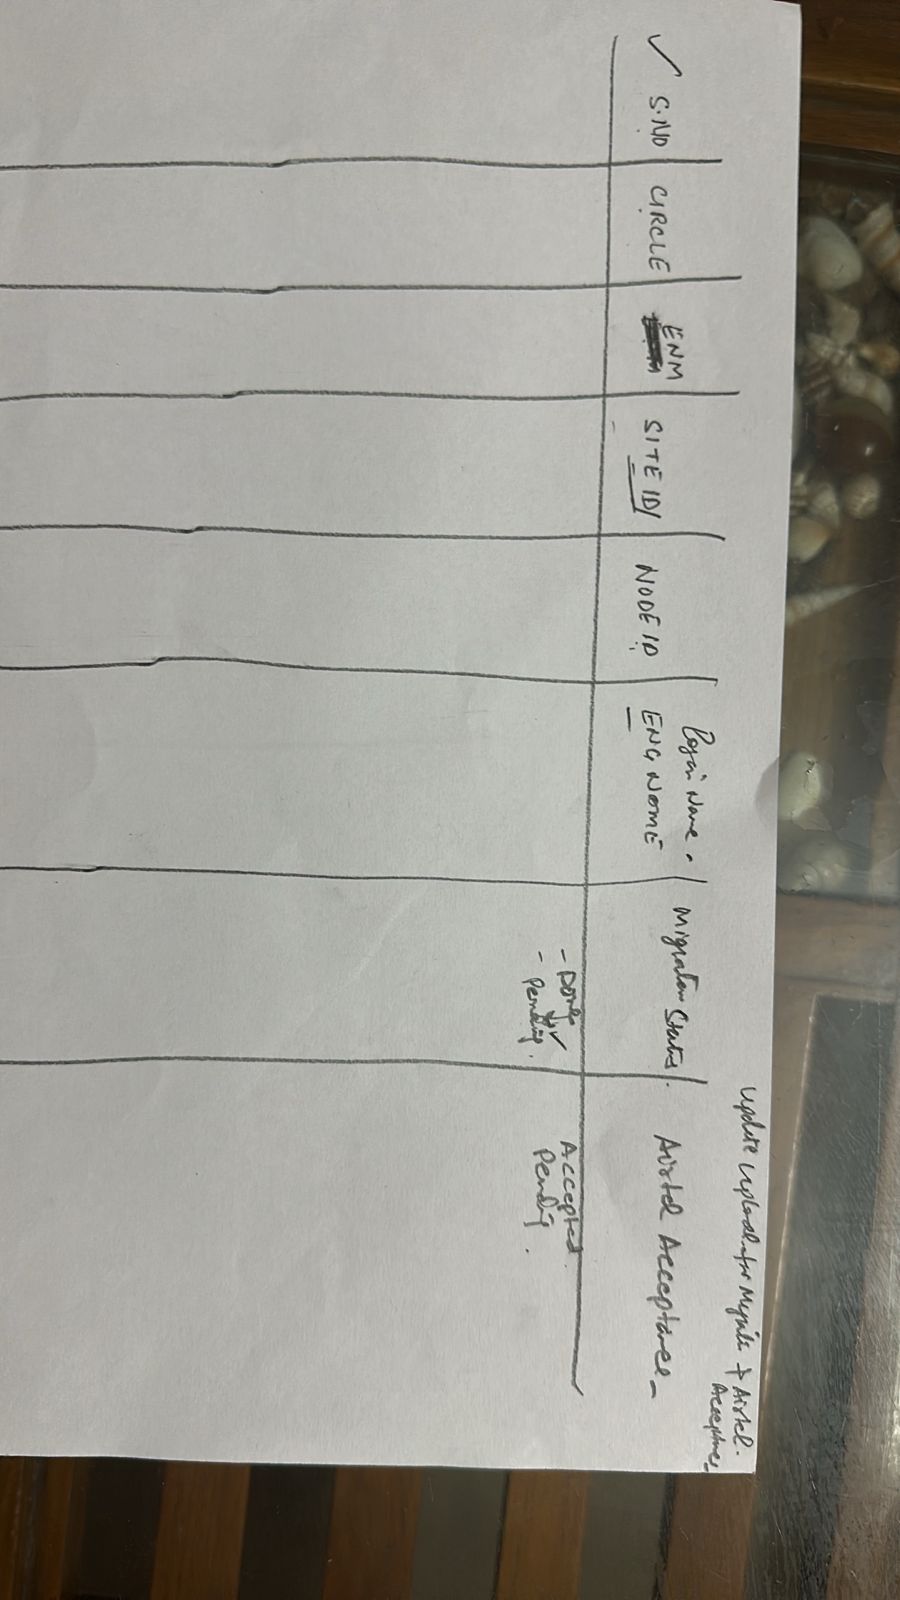 Update Upload for Migrate + Airtel.
Acceptance
✓ S.NO
CIRCLE
ENM
SITE ID/
NODE ID
Login Name.
ENG NAME
Migration Status.
Airtel Acceptance
- Done ✓
- Pending.
Accepted.
Pending.